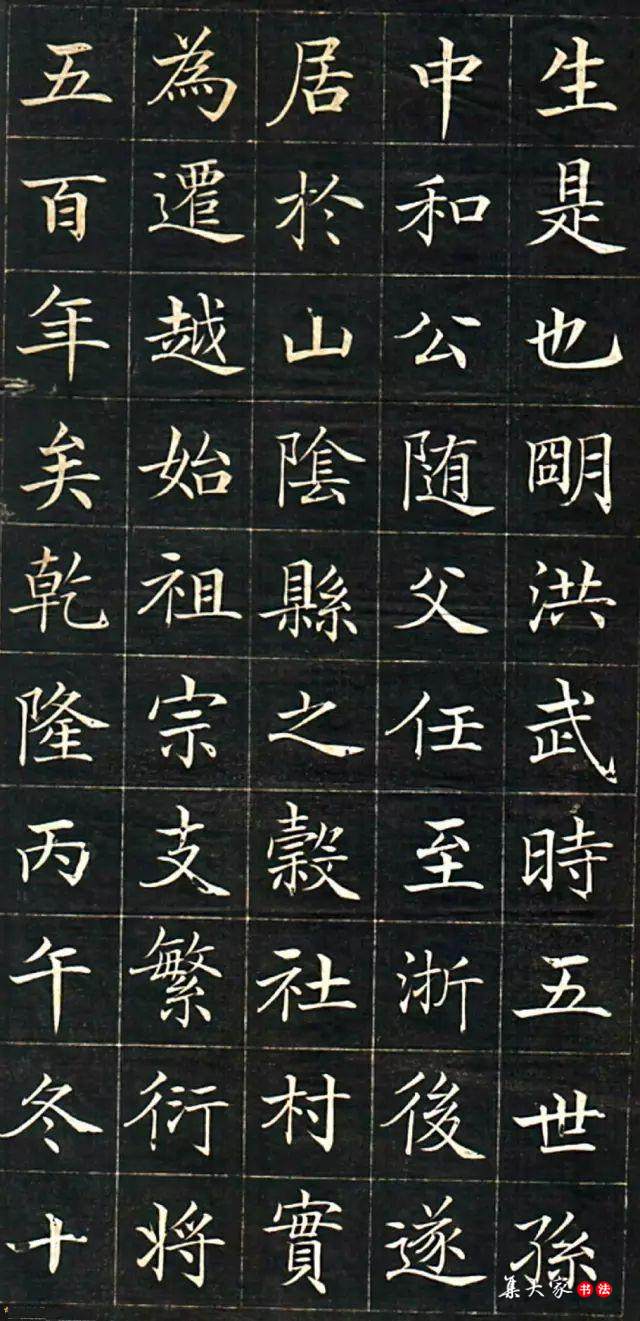 生是也朙洪武時五世孫
中和公随父任至浙後遂
居於山陰縣之穀社村實
為遷越始祖宗支繁衍将
五百年矣乾隆丙午冬十
集大家书法